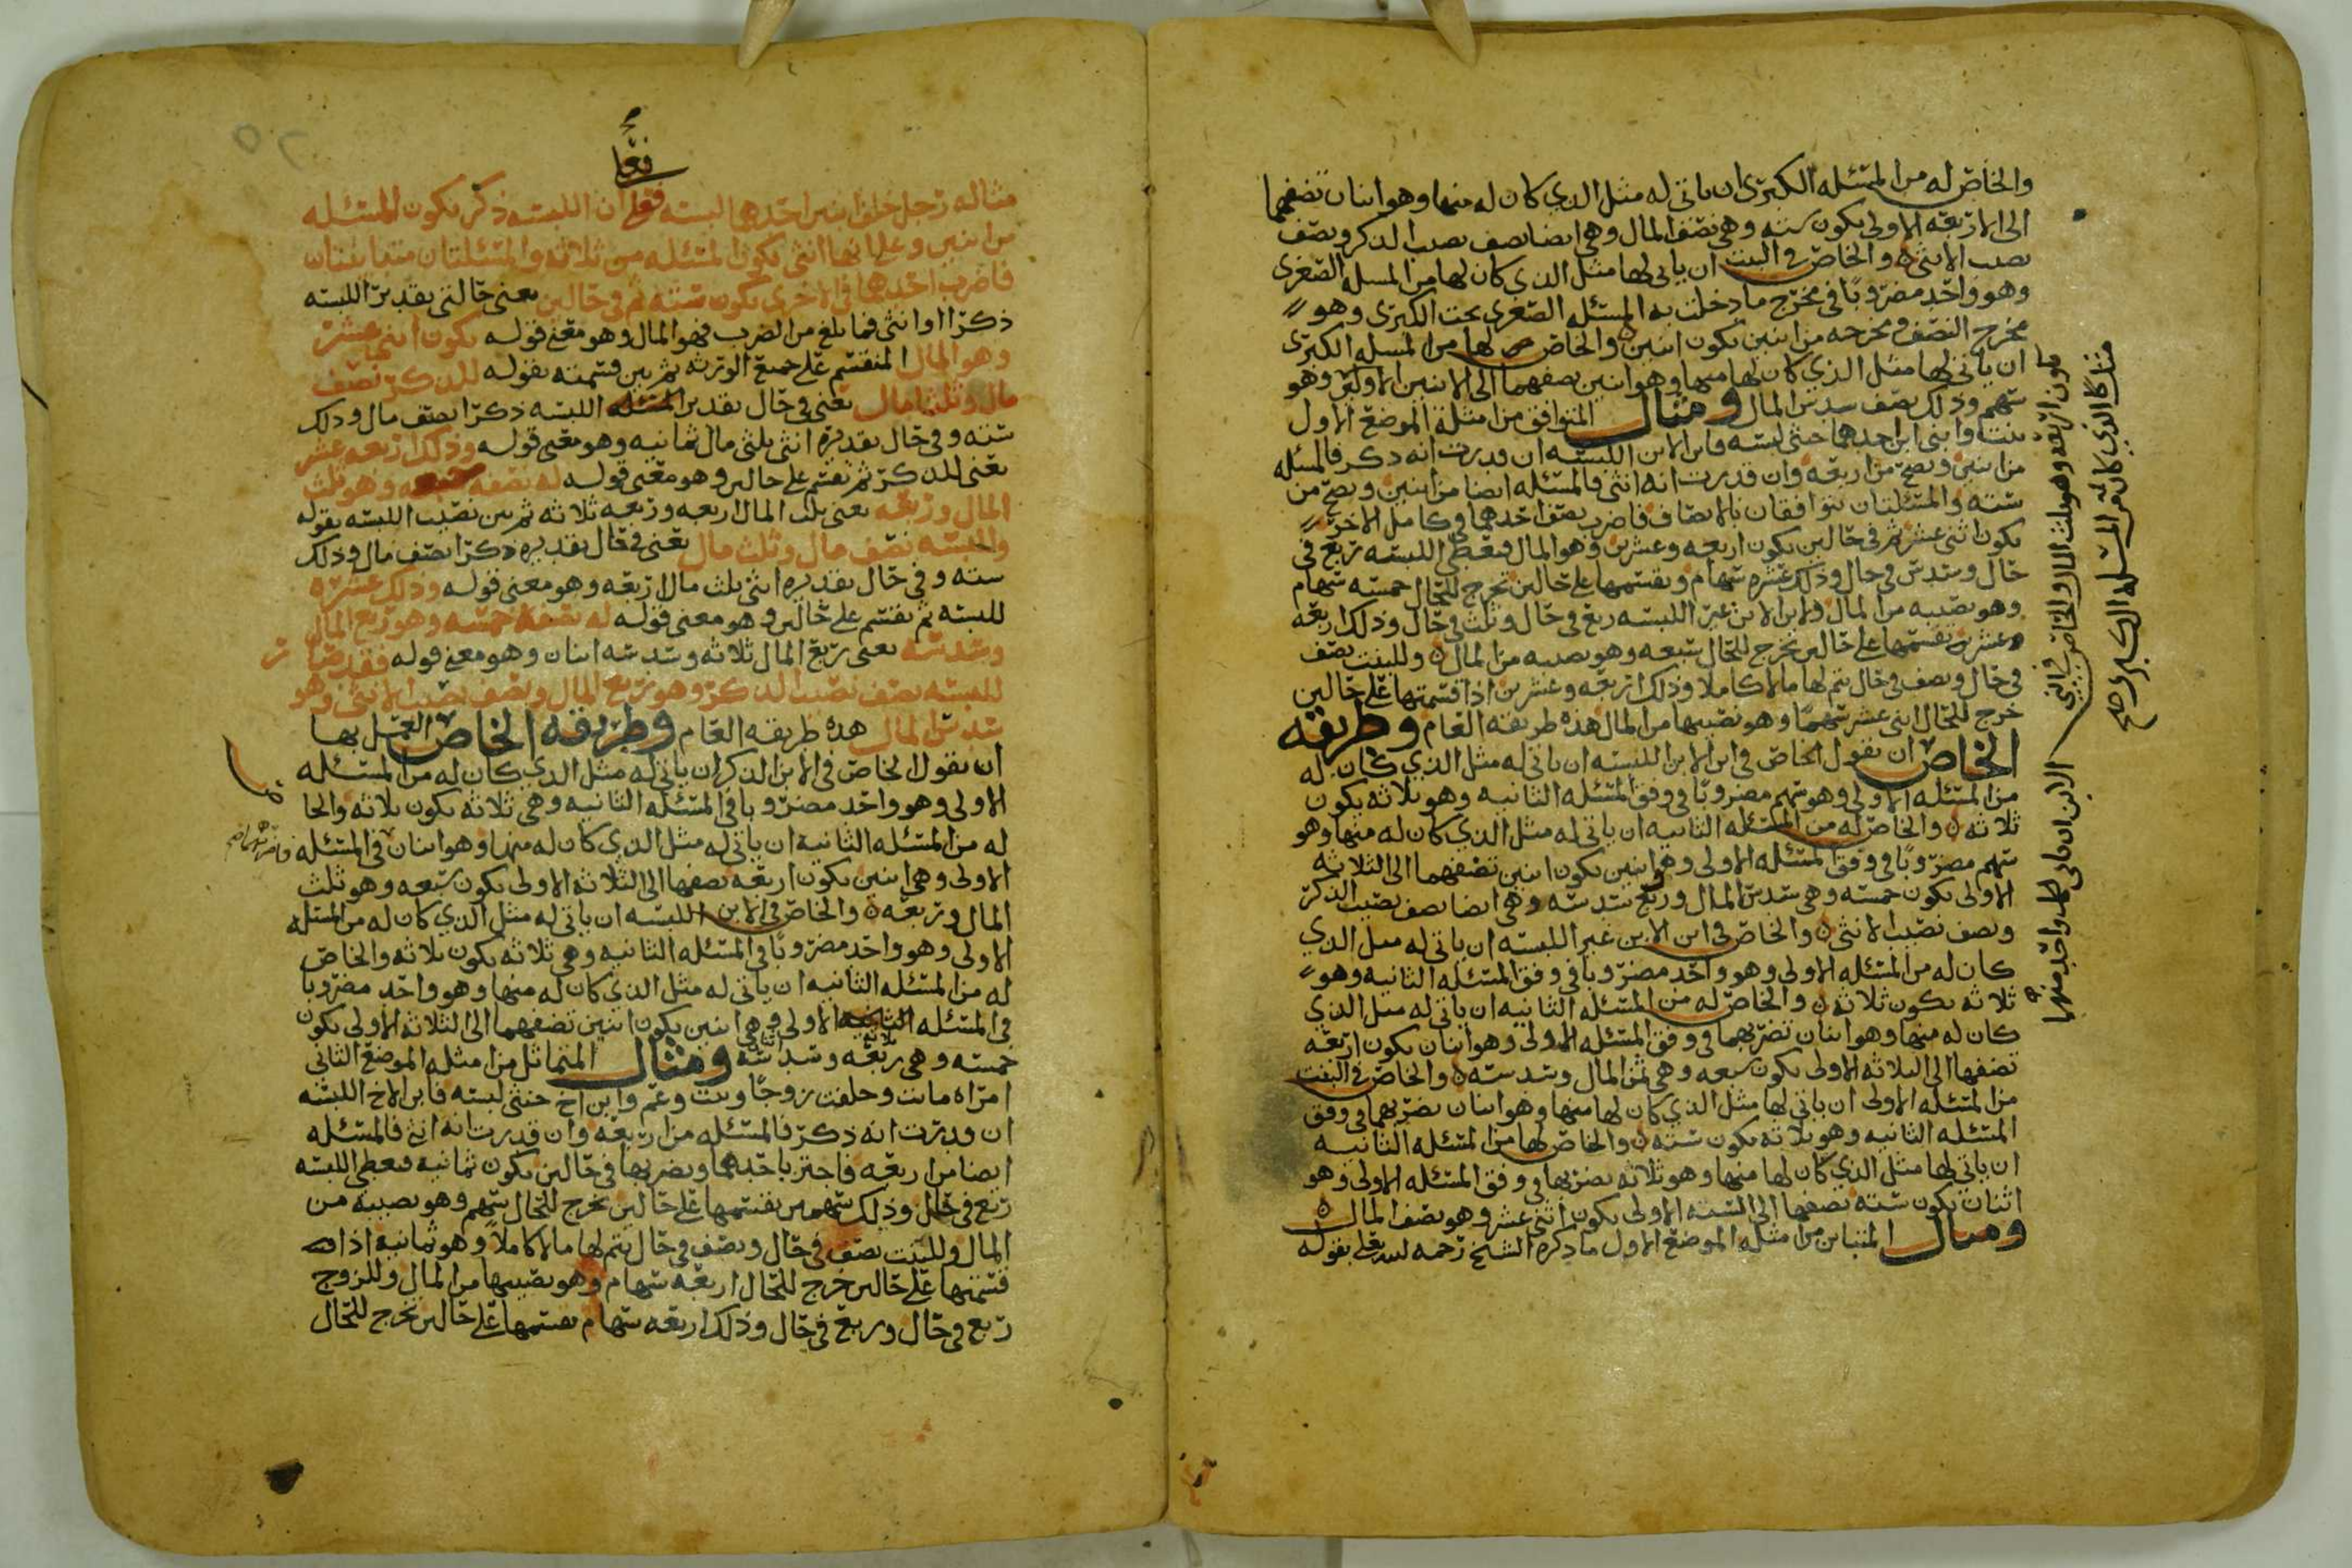 والخاص له من المسئله الكبرى ان ياتي له مثل الذي كان له منها وهو اثنان تضفهما
الى الاربعه الاولى يكون سته وهي نصف المال وهي ايضا نصف نصيب الذكر ونصف
نصيب الانثى والخاص في البنت ان ياتي لها مثل الذي كان لها من المسله الصغرى
وهو واحد مضروبا في مخرج ما دخلت به المسئله الصغرى تحت الكبرى وهو
مخرج النصف ومخرجه من اثنين يكون اثنين والخاص لها من المسله الكبرى
ان ياتي لها مثل الذي كان لها منها وهو اثنين تضفهما الى الاثنين الاولين وهو
سهم وذلك نصف سدس المال ومثال المتوافق من امثلة الموضع الاول
بنت وابني ابن احدهما خنثى لبسه فابن الابن اللبسه ان قدرت انه ذكر فالمسئله
من اثنين وتصح من اربعه وان قدرت انه انثى فالمسئله ايضا من اثنين وتصح من
سته والمسئلتان تتوافقان بالانصاف فاضرب نصف احدهما في كامل الاخرى
يكون اثنى عشر ثم في حالين يكون اربعه وعشرين وهو المال فتعطي اللبسه ربع في
حال وسدس في حال وذلك عشره سهام وتقسمها على حالين تخرج للحال خمسه سهام
وهو نصيبه من المال ولابن الابن غير اللبسه ربع في حال وثلث في حال وذلك اربعه
عشر وتقسمها على حالين تخرج للحال سبعه وهو نصيبه من المال وللبنت نصف
في حال ونصف في حال يتم لها مالا كاملا وذلك اربعه وعشرين اذا قسمتها على حالين
خرج للحال اثنى عشر سهما وهو نصيبها من المال هذه طريقه العام وطريقه
الخاص ان تقول الخاص في ابن الابن اللبسه ان ياتي له مثل الذي كان له
من المسئله الاولى وهو سهم مضروبا في وفق المسئله الثانيه وهو ثلاثه يكون
ثلاثه والخاص له من المسئله الثانيه ان ياتي له مثل الذي كان له منها وهو
سهم مضروبا في وفق المسئله الاولى وهو اثنين يكون اثنين تضفهما الى الثلاثه
الاولى يكون خمسه وهي سدس المال وربع سدسه وهي ايضا نصف نصيب الذكر
ونصف نصيب الانثى والخاص في ابن الابن غير اللبسه ان ياتي له مثل الذي
كان له من المسئله الاولى وهو واحد مضروبا في وفق المسئله الثانيه وهو
ثلاثه يكون ثلاثه والخاص له من المسئله الثانيه ان ياتي له مثل الذي
كان له منها وهو اثنان تضربهما في وفق المسئله الاولى وهو اثنان يكون اربعه
تضفها الى الثلاثه الاولى يكون سبعه وهي ثمن المال وسدسه والخاص في البنت
من المسئله الاولى ان ياتي لها مثل الذي كان لها منها وهو اثنان تضربهما في وفق
المسئله الثانيه وهو ثلاثه يكون سته والخاص لها من المسئله الثانيه
ان ياتي لها مثل الذي كان لها منها وهو ثلاثه تضربها في وفق المسئله الاولى وهو
اثنان يكون سته تضفها الى السته الاولى يكون اثنى عشر وهو نصف المال
ومثال المتباين من امثله الموضع الاول ما ذكره الشيخ رحمه الله تعلى بقوله
يكون اربعه وهو ثلث المال والخاص في
الابن ان ياتي لكل واحد منهما
مثل الذي كان له من المسئله الكبرى صح
فعلى
مثاله رجل خلف ابنين احدهما لبسه فعلى ان اللبسه ذكر يكون المسئله
من اثنين وعلى انها انثى يكون المسئله من ثلاثه والمسئلتان متباينتان
فاضرب احدهما في الاخرى يكون سته ثم في حالين يعني حالتي تقدير اللبسه
ذكرا او انثى فما بلغ من الضرب فهو المال وهو معنى قوله يكون اثني عشر
وهو المال المنقسم على جميع الورثه ثم بين قسمته بقوله للذكر نصف
مال وثلثا مال يعني في حال تقدير اللبسه ذكرا نصف مال وذلك
سته وفي حال تقديره انثى ثلثي مال ثمانيه وهو معنى قوله وذلك اربعه عشر
يعني للذكر ثم تقسم على حالين وهو معنى قوله له نصفه سبعه وهو ثلث
المال وربعه يعني ثلث المال اربعه وربعه ثلاثه ثم بين نصيب اللبسه بقوله
واللبسه نصف مال وثلث مال يعني في حال تقديره ذكرا نصف مال وذلك
سته وفي حال تقديره انثى ثلث مال اربعه وهو معنى قوله وذلك عشره
للبسه ثم تقسم على حالين وهو معنى قوله له نصفه خمسه وهو ربع المال
وسدسه يعني ربع المال ثلاثه وسدسه اثنان وهو معنى قوله فقد صار
للبسه نصف نصيب الذكر وهو ربع المال ونصف نصيب الانثى وهو
سدس المال هذه طريقه العام وطريقه الخاص العمل بها
ان تقول الخاص في الابن الذكر ان ياتي له مثل الذي كان له من المسئله
الاولى وهو واحد مضروبا في المسئله الثانيه وهي ثلاثه يكون ثلاثه والخا
له من المسئله الثانيه ان ياتي له مثل الذي كان له منها وهو اثنان في المسئله
الاولى وهي اثنين يكون اربعه تضفها الى الثلاثه الاولى يكون سبعه وهو ثلث
المال وربعه والخاص في الابن اللبسه ان ياتي له مثل الذي كان له من المسئله
الاولى وهو واحد مضروبا في المسئله الثانيه وهي ثلاثه يكون ثلاثه والخاص
له من المسئله الثانيه ان ياتي له مثل الذي كان له منها وهو واحد مضروبا
في المسئله الاولى وهي اثنين يكون اثنين تضفهما الى الثلاثه الاولى يكون
خمسه وهي ربعه وسدسه ومثال المتماثل من امثله الموضع الثاني
امراه ماتت وخلفت زوجا وبنت وعم وابن اخ خنثى لبسه فابن الاخ اللبسه
ان قدرت انه ذكر فالمسئله من اربعه وان قدرت انه انثى فالمسئله
ايضا من اربعه فاجتز باحدهما وتضربها في حالين يكون ثمانيه فيعطى اللبسه
ربع في حال وذلك سهمين تقسمها على حالين تخرج للحال سهم وهو نصيبه من
المال وللبنت نصف في حال ونصف في حال يتم لها مالا كاملا وهو ثمانيه اذا
قسمتها على حالين خرج للحال اربعه سهام وهو نصيبها من المال وللزوج
ربع في حال وربع في حال وذلك اربعه سهام تقسمها على حالين تخرج للحال